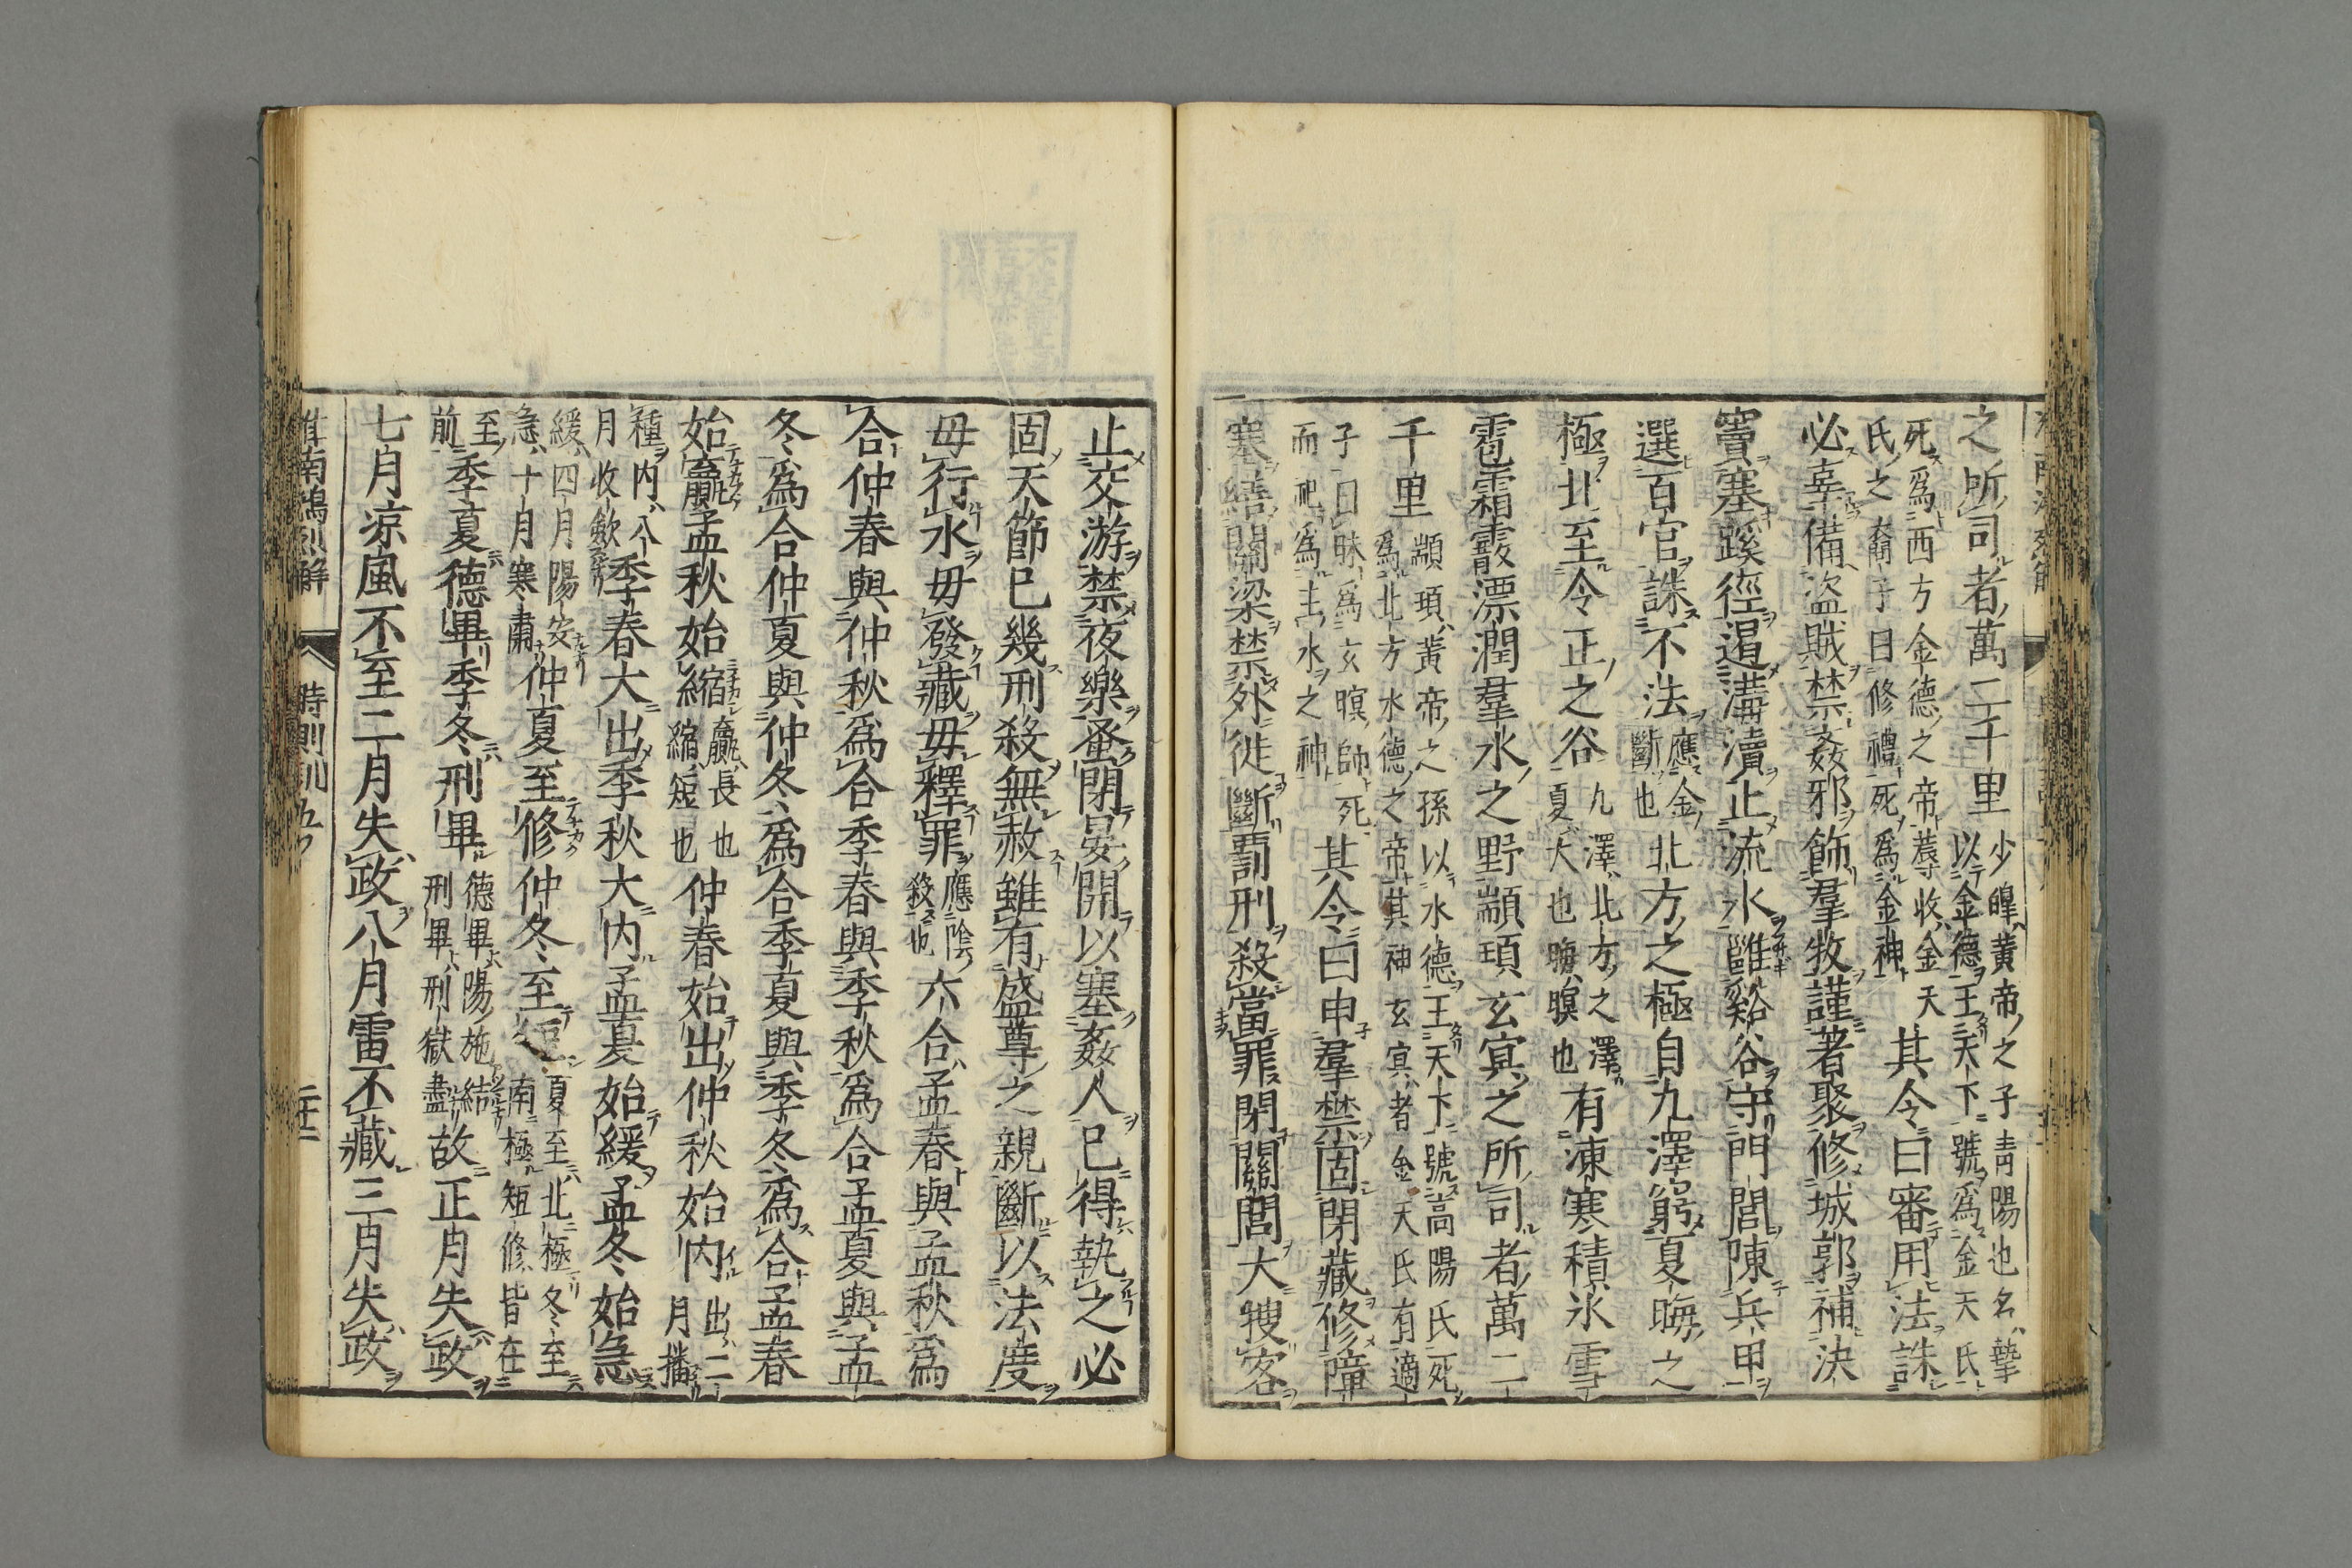 之所司者萬二千里少皥黃帝之子靑陽也名摯以金德王天下號爲金天氏
死爲西方金德之帝蓐收金天氏之裔子曰修禮死爲金神其令曰審用法誅
必辜備盜賊禁姦邪飾羣牧謹著聚修城郭補決
竇塞蹊徑遏溝瀆止流水雝谿谷守門閭陳兵甲
選百官誅不法應金斷也北方之極自九澤窮夏晦之
極北至令正之谷九澤北方之澤夏大也晦暝也有凍寒積氷雪
雹霜霰漂潤羣水之野顓頊玄冥之所司者萬二
千里顓頊黃帝之孫以水德王天下號高陽氏死爲北方水德之帝其神玄冥者金天氏有適
子曰昧爲玄暝師死而祀爲主水之神其令曰申羣禁固閉藏修障
塞繕關梁禁外徙斷罰刑殺當罪閉關閭大搜客
止交游禁夜樂蚤閉晏開以塞姦人已得執之必
固天節已幾刑殺無赦雖有盛尊之親斷以法度
毋行水毋發藏毋釋罪應陰殺也六合孟春與孟秋爲
合仲春與仲秋爲合季春與季秋爲合孟夏與孟
冬爲合仲夏與仲冬爲合季夏與季冬爲合孟春
始贏孟秋始縮贏長也縮短也仲春始出仲秋始內出二月播
種內八月收歛季春大出季秋大內孟夏始緩孟冬始急
緩四月陽安急十月寒肅仲夏至修仲冬至短夏至北極冬至南極短修皆在
至前季夏德畢季冬刑畢德畢陽施結刑畢刑獄盡故正月失政
七月凉風不至二月失政八月雷不藏三月失政
淮南鴻烈解 時則訓五 二十二